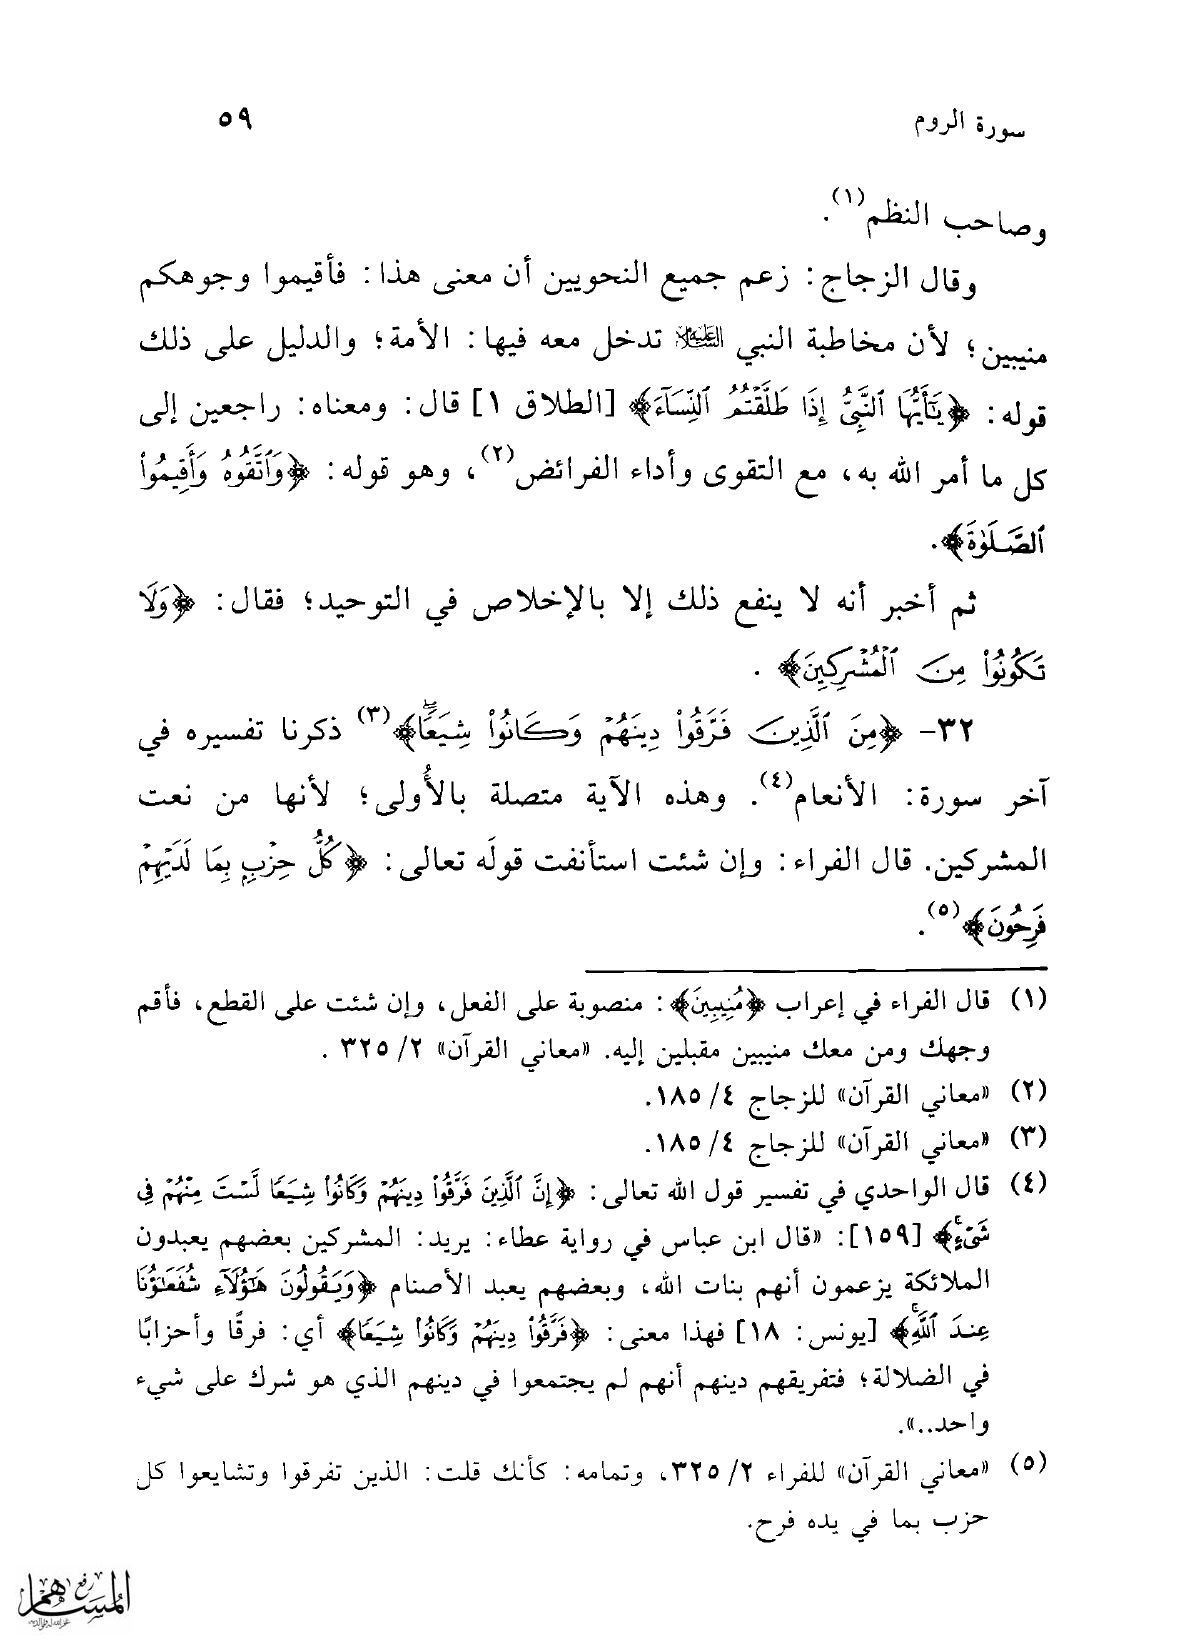 سورة الروم
٥٩
وصاحب النظم(١).
وقال الزجاج: زعم جميع النحويين أن معنى هذا: فأقيموا وجوهكم
منيبين؛ لأن مخاطبة النبي عليه السلام تدخل معه فيها: الأمة؛ والدليل على ذلك
قوله: ﴿يَٰٓأَيُّهَا ٱلنَّبِيُّ إِذَا طَلَّقْتُمُ ٱلنِّسَآءَ﴾ [الطلاق ١] قال: ومعناه: راجعين إلى
كل ما أمر الله به، مع التقوى وأداء الفرائض(٢)، وهو قوله: ﴿وَٱتَّقُوهُ وَأَقِيمُوا۟
ٱلصَّلَوٰةَ﴾.
ثم أخبر أنه لا ينفع ذلك إلا بالإخلاص في التوحيد؛ فقال: ﴿وَلَا
تَكُونُوا۟ مِنَ ٱلْمُشْرِكِينَ﴾ .
٣٢- ﴿مِنَ ٱلَّذِينَ فَرَّقُوا۟ دِينَهُمْ وَكَانُوا۟ شِيَعًۭا ۖ﴾(٣) ذكرنا تفسيره في
آخر سورة: الأنعام(٤). وهذه الآية متصلة بالأُولى؛ لأنها من نعت
المشركين. قال الفراء: وإن شئت استأنفت قولَه تعالى: ﴿كُلُّ حِزْبٍۭ بِمَا لَدَيْهِمْ
فَرِحُونَ﴾(٥).
(١) قال الفراء في إعراب ﴿مُنِيبِينَ﴾: منصوبة على الفعل، وإن شئت على القطع، فأقم
وجهك ومن معك منيبين مقبلين إليه. «معاني القرآن» ٢/ ٣٢٥ .
(٢) «معاني القرآن» للزجاج ٤/ ١٨٥.
(٣) «معاني القرآن» للزجاج ٤/ ١٨٥.
(٤) قال الواحدي في تفسير قول الله تعالى: ﴿إِنَّ ٱلَّذِينَ فَرَّقُوا۟ دِينَهُمْ وَكَانُوا۟ شِيَعًا لَّسْتَ مِنْهُمْ فِى
شَىْءٍ ۚ﴾ [١٥٩]: «قال ابن عباس في رواية عطاء: يريد: المشركين بعضهم يعبدون
الملائكة يزعمون أنهم بنات الله، وبعضهم يعبد الأصنام ﴿وَيَقُولُونَ هَٰٓؤُلَآءِ شُفَعَٰٓؤُنَا
عِندَ ٱللَّهِ ۚ﴾ [يونس: ١٨] فهذا معنى: ﴿فَرَّقُوا۟ دِينَهُمْ وَكَانُوا۟ شِيَعًا﴾ أي: فرقًا وأحزابًا
في الضلالة؛ فتفريقهم دينهم أنهم لم يجتمعوا في دينهم الذي هو شرك على شيء
واحد..».
(٥) «معاني القرآن» للفراء ٢/ ٣٢٥، وتمامه: كأنك قلت: الذين تفرقوا وتشايعوا كل
حزب بما في يده فرح.